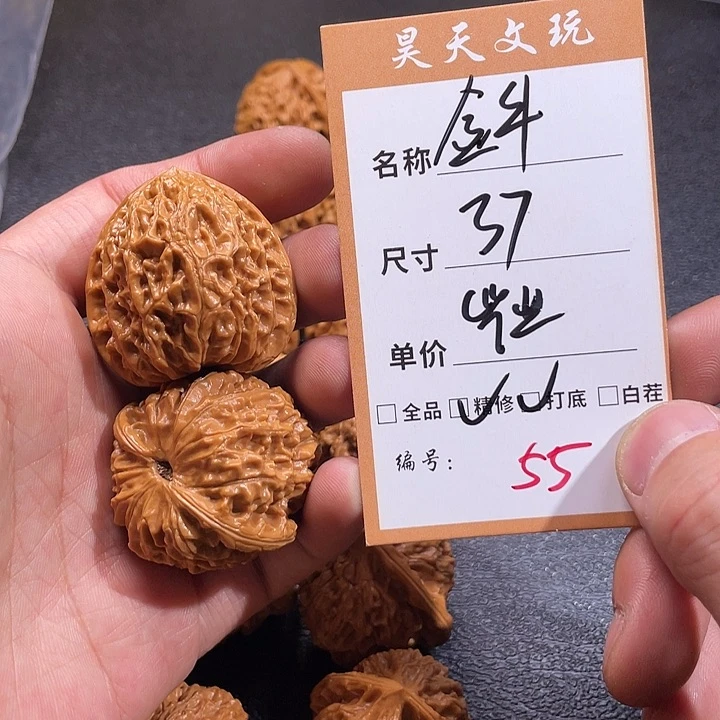 昊天文玩
名称 金牛
尺寸 37
单价
□全品 □精修 □打底 □白茬
编号: 55